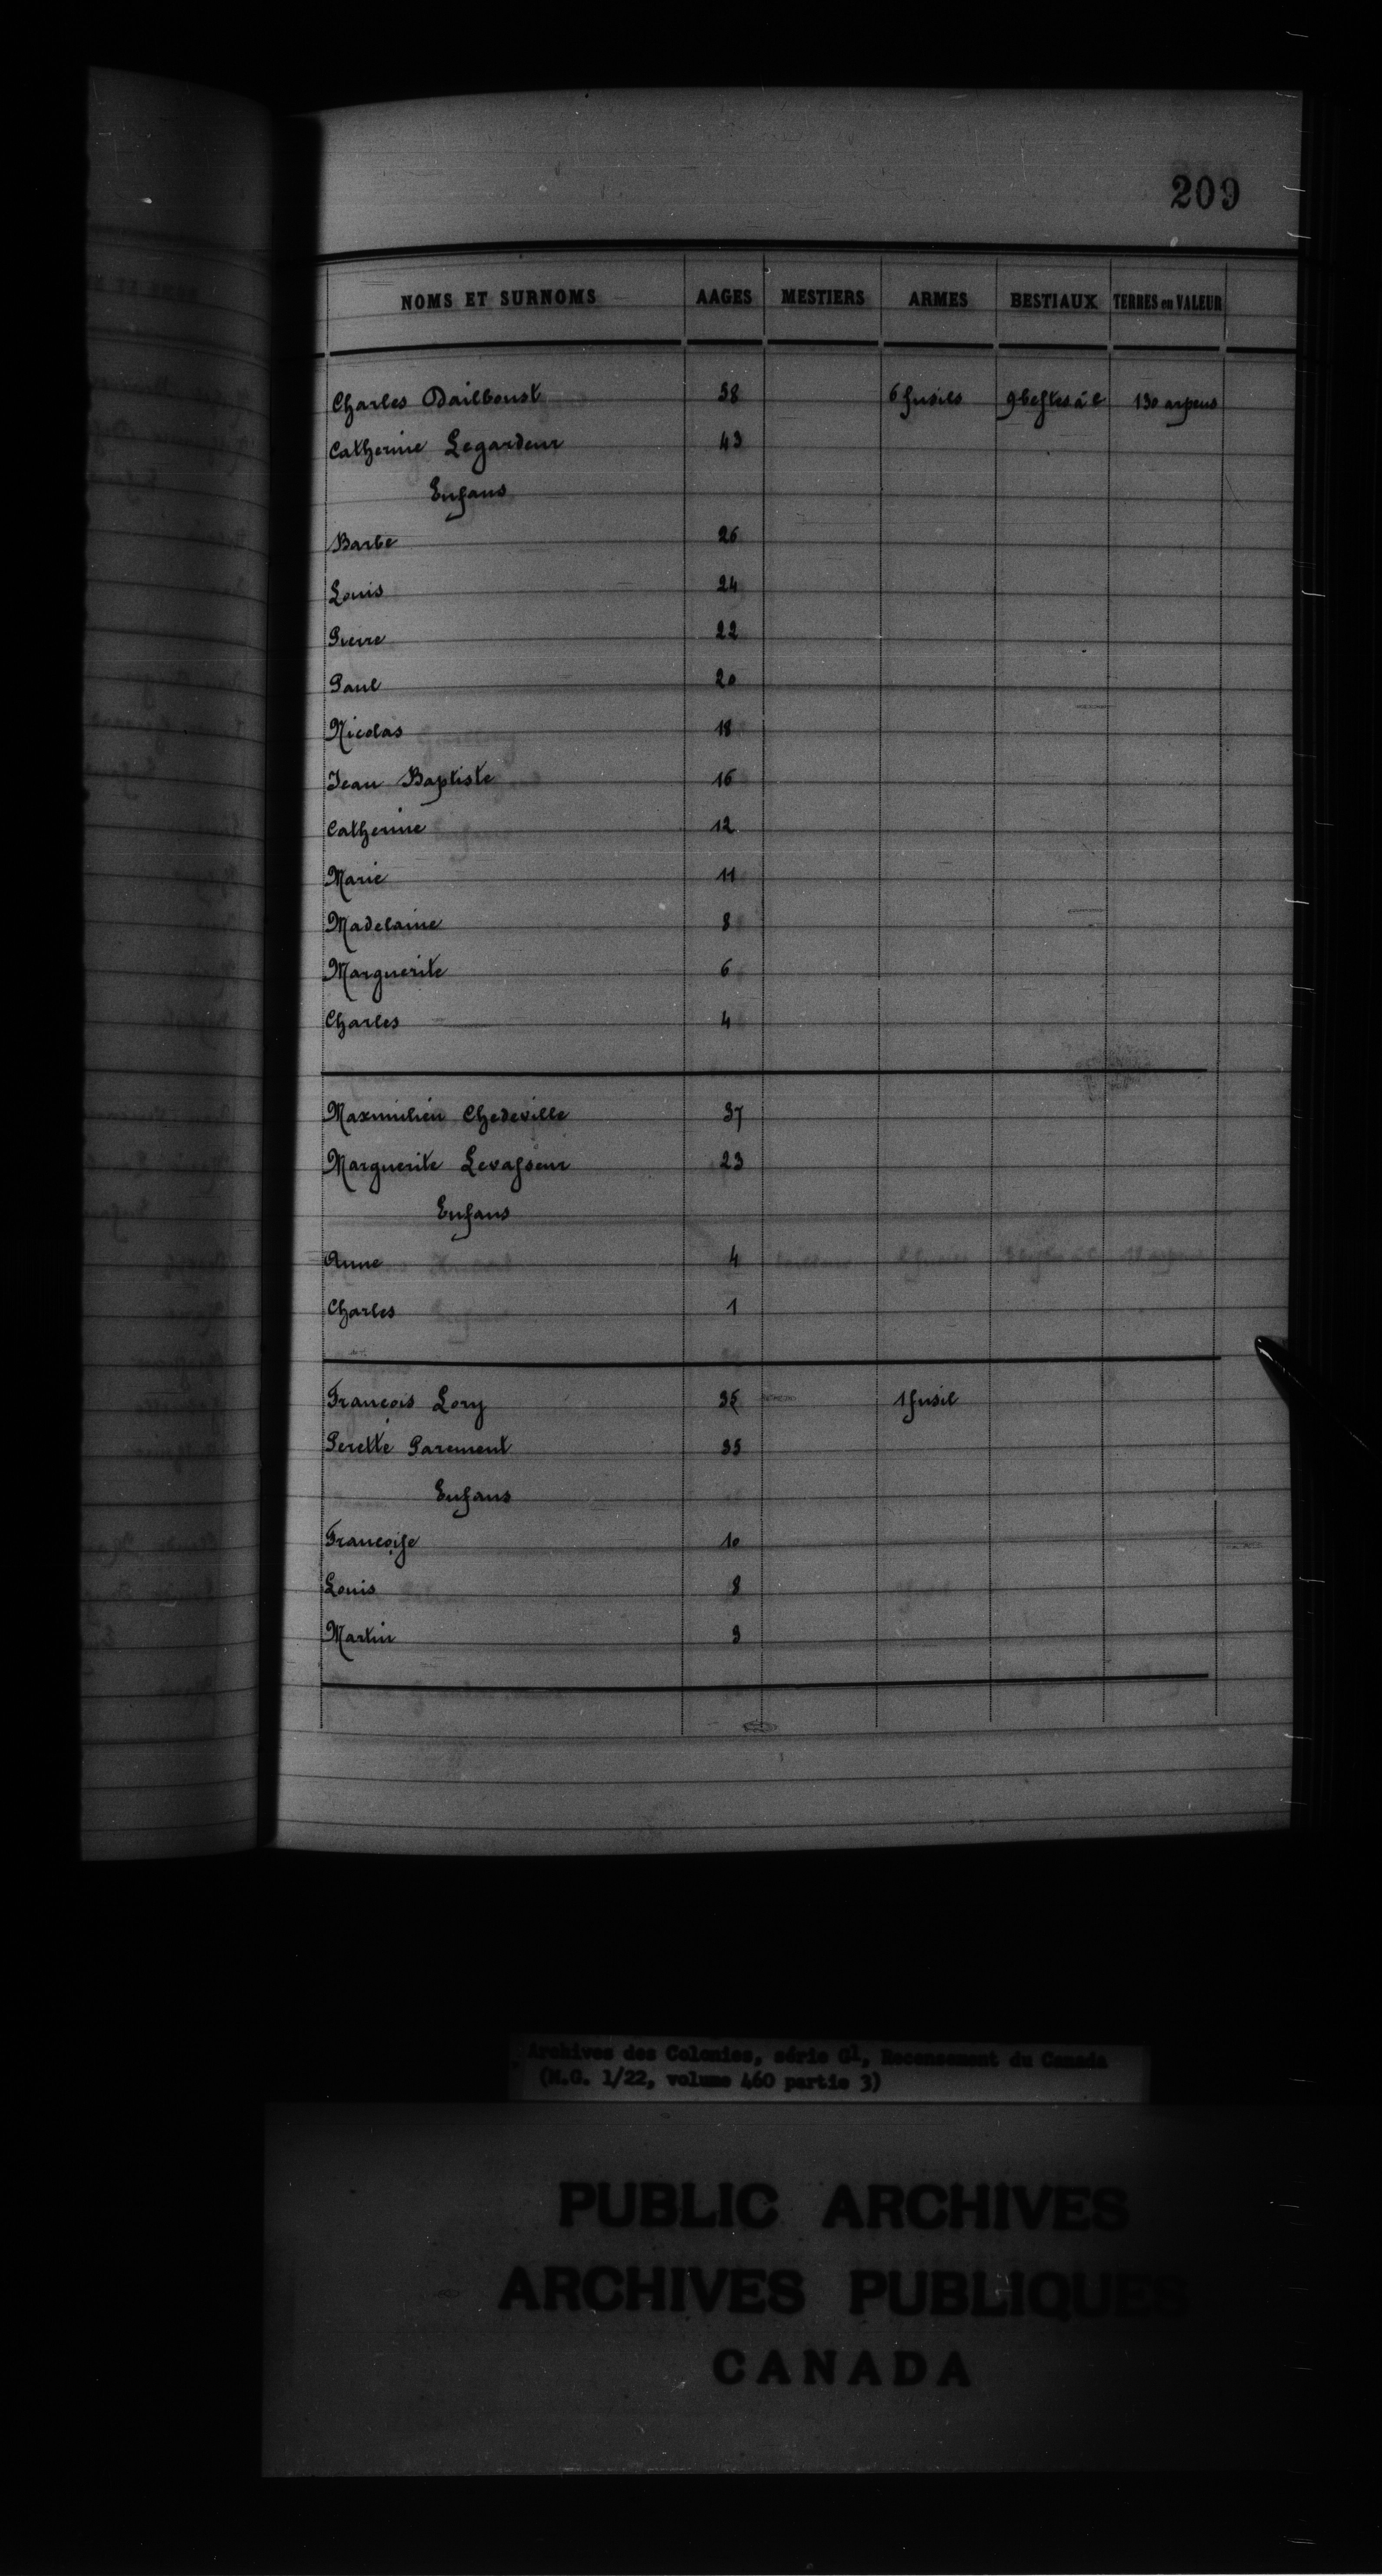 209
NOMS ET SURNOMS AAGES MESTIERS ARMES BESTIAUX TERRES en VALEUR
Charles Dailboust 58 6 fusils 9 bestes à c 130 arpens
Catherine Legardeur 43
Enfans
Barbe 26
Louis 24
Pierre 22
Paul 20
Nicolas 18
Jean Baptiste 16
Catherine 12
Marie 11
Madelaine 8
Marguerite 6
Charles 4
Maxmilien Chedeville 37
Marguerite Levasseur 23
Enfans
Anne 4
Charles 1
Francois Lory 35 1 fusil
Perette Parement 35
Enfans
Francoise 10
Louis 8
Martin 3
Archives des Colonies, série G1, Recensement du Canada
(M.G. 1/22, volume 460 partie 3)
PUBLIC ARCHIVES
ARCHIVES PUBLIQUES
CANADA